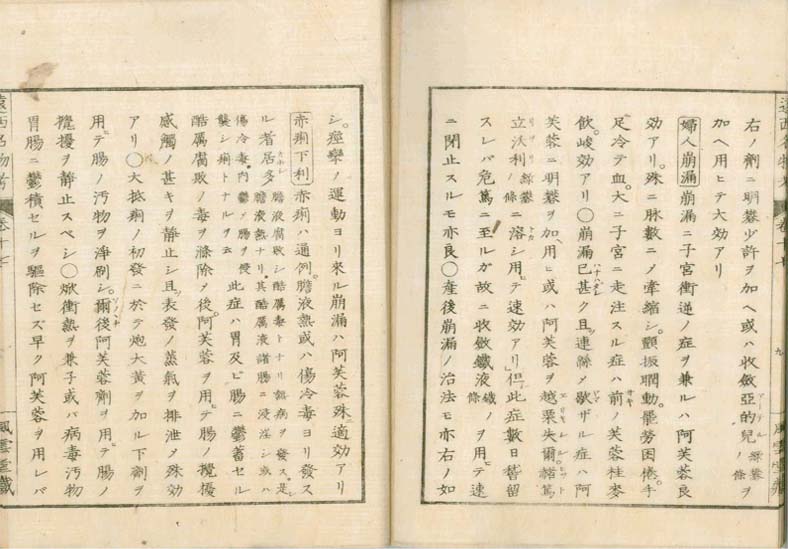 右ノ劑ニ明礬少許ヲ加ヘ或ハ收斂亞的兒アーテル礬ノ條ヲ
加ヘ用ヒテ大効アリ
婦人崩漏 崩漏ニ子宮衝逆ノ症ヲ兼ルハ阿芙蓉良
効アリ。殊ニ脉數ニメ牽縮シ。顫振瞤動。罷勞困倦。手
足冷テ血。大ニ子宮ニ走注スル症ハ前ノ芙蓉桂麥
飲。峻効アリ〇崩漏已甚ク且ツ連緜メ歇ザル症ハ阿
芙蓉ニ明礬ヲ加ヘ用ヒ或ハ阿芙蓉ヲ越栗失爾諾篤
立沃利ノ條ニ溶シ用テ速効アリ但シ此症數日畱留
スレバ危篤ニ至ルガ故ニ收斂鐵液鐵ノ條ヲ用テ速
ニ閉止スルモ亦良〇產後崩漏ノ治法モ亦右ノ如
シ。痙攣ノ運動ヨリ來ル崩漏ハ阿芙蓉殊ニ適効アリ
赤痢下利 赤痢ハ通例。膽液熱或ハ傷冷毒ヨリ發ス
ル者居多 膽液腐敗シ酷厲毒トナリ
襲シ痢トナルヲ云 此症ハ胃及ビ腸ニ鬱蓄セル
酷厲腐敗ノ毒ヲ滌除メ後。阿芙蓉ヲ用テ腸ノ攪擾
感觸ノ甚キヲ靜止シ且ツ表發ノ蒸氣ヲ排泄メ殊効
アリ〇大抵痢ノ初發ニ於テ炮大黃ヲ加ル下劑ヲ
用テ腸ノ汚物ヲ淨刷シ。爾後阿芙蓉劑ヲ用テ腸ノ
攪擾ヲ靜止スベシ〇焮衝熱ヲ兼子或バ病毒汚物
胃腸ニ鬱積セルヲ驅除セズ早ク阿芙蓉ヲ用レバ
遠西名物考 卷十七
九
風雲堂藏